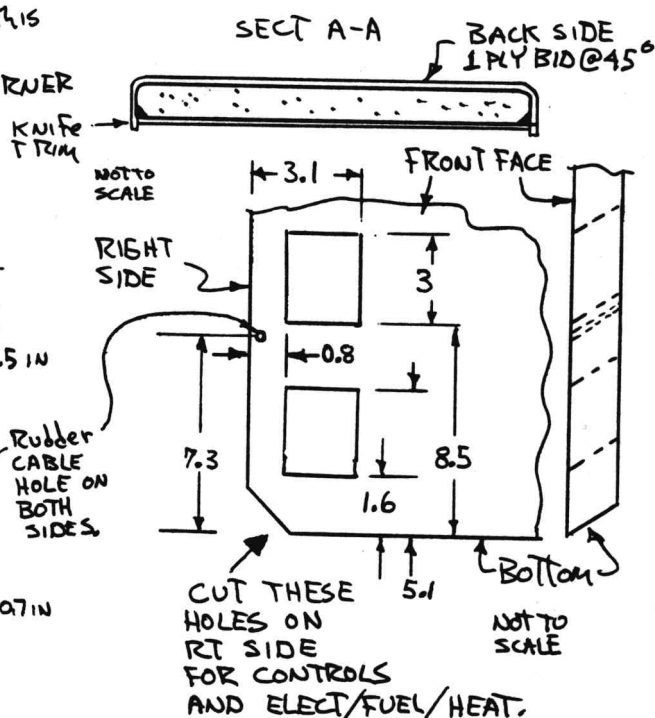 SECT A-A
BACK SIDE
1 PLY BID @ 45°
RNER
KNIFE
TRIM
NOT TO
SCALE
3.1
FRONT FACE
RIGHT
SIDE
3
0.8
.5 IN
Rudder
CABLE
HOLE ON
BOTH
SIDES.
7.3
8.5
1.6
5.1
BOTTOM
NOT TO
SCALE
0.7 IN
CUT THESE
HOLES ON
RT SIDE
FOR CONTROLS
AND ELECT/FUEL/HEAT.